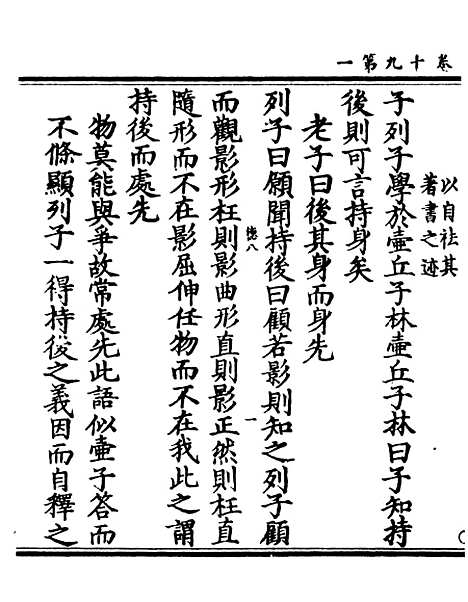 卷十九第一
以自祛其
著書之迹
子列子學於壺丘子林壺丘子林曰子知持
後則可言持身矣
老子曰後其身而身先
列子曰願聞持後曰顧若影則知之列子顧
德八
一
而觀影形枉則影曲形直則影正然則枉直
隨形而不在影屈伸任物而不在我此之謂
持後而處先
物莫能與爭故常處先此語似壺子答而
不條顯列子一得持後之義因而自釋之